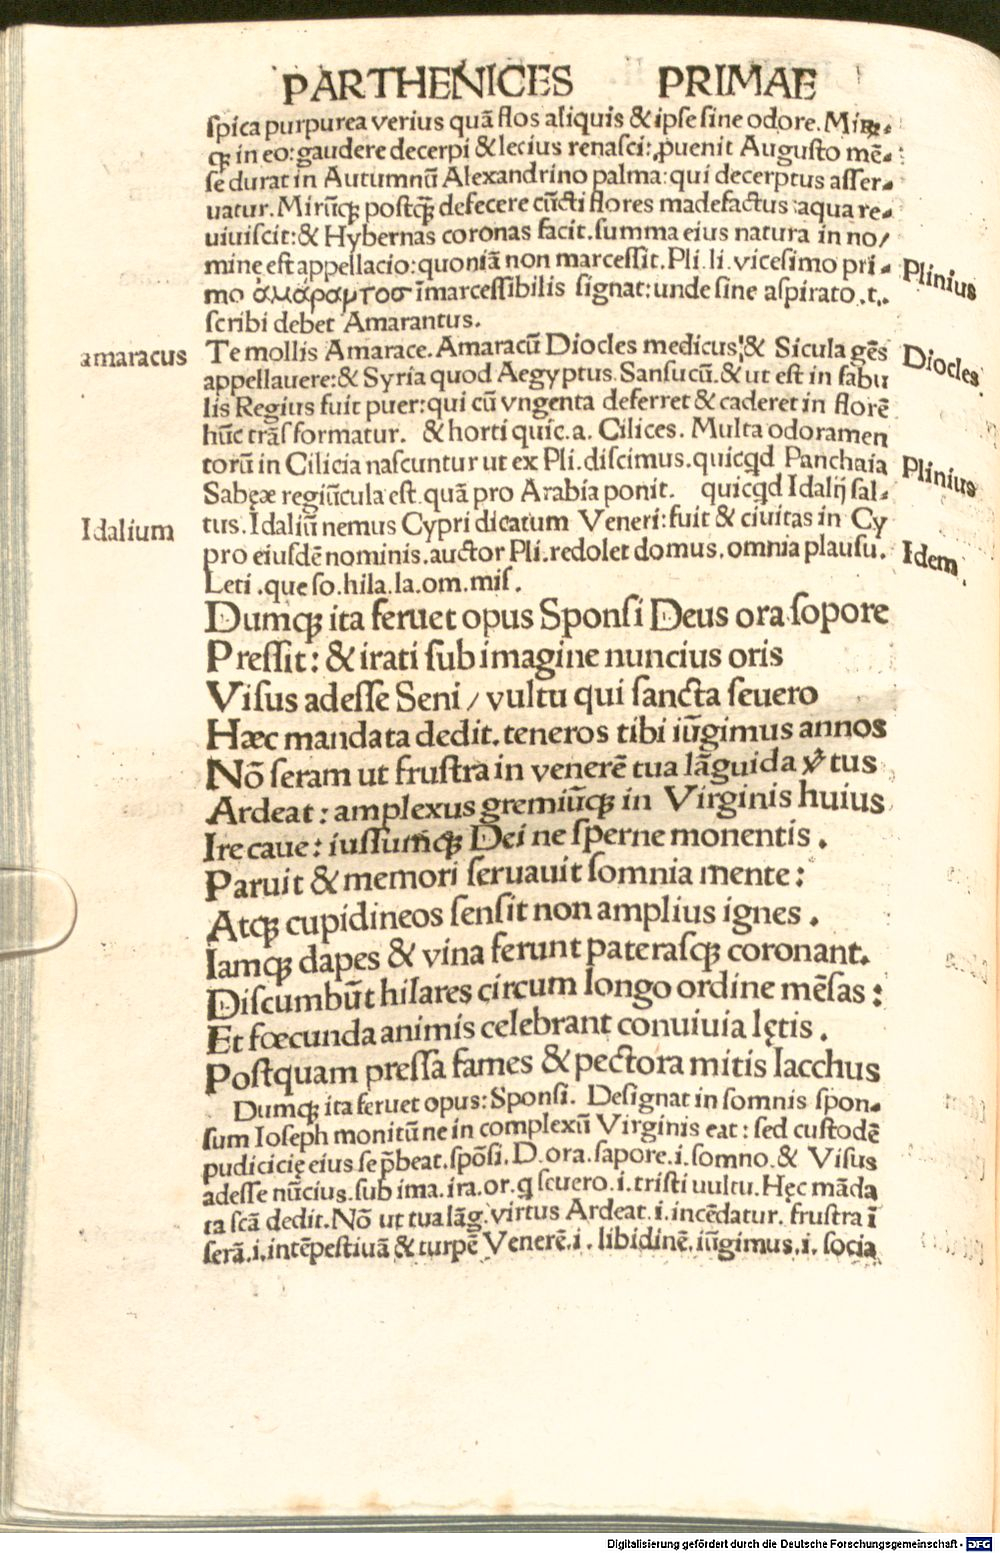 PARTHENICES PRIMAE
ſpica purpurea verius quā flos aliquis & ipſe ſine odore. Mirū
qꝫ in eo: gaudere decerpi & lecius renaſci: ꝓuenit Auguſto mē-
ſe durat in Autumnū Alexandrino palma: qui decerptus aſſer-
uatur. Mirūqꝫ poſtqꝫ̄ defecere cūcti flores madefactus aqua re-
uiuiſcit: & Hybernas coronas facit. ſumma eius natura in no/
mine eſt appellacio: quoniā non marceſſit. Pli. li. viceſimo pri-
Plinius
mo αμάραμτοσ īmarceſſibilis ſignat: unde ſine aſpirato .t.
ſcribi debet Amarantus.
amaracus
Te mollis Amarace. Amaracū Diocles medicus: & Sicula gēs
Diocles
appellauere: & Syria quod Aegyptus Sanſucū. & ut eſt in fabu
lis Regius fuit puer: qui cū vngenta deferret & caderet in florē
hūc trāſformatur. & horti quic. a. Cilices. Multa odoramen
torū in Cilicia naſcuntur ut ex Pli. diſcimus. quicqd Panchaia
Plinius
Sabęæ regiūcula eſt. quā pro Arabia ponit. quicqd Idalij ſal-
Idalium
tus. Idaliū nemus Cypri dicatum Veneri: fuit & ciuitas in Cy
pro eiuſdē nominis. auctor Pli. redolet domus. omnia plauſu.
Idem
Leti . que ſo. hila. la. om. miſ.
Dumqꝫ ita feruet opus Sponſi Deus ora ſopore
Preſſit: & irati ſub imagine nuncius oris
Viſus adeſſe Seni / vultu qui ſancta ſeuero
Hæc mandata dedit. teneros tibi iūgimus annos
Nō ſeram ut fruſtra in venerē tua lāguida v̓tus
Ardeat: amplexus gremiūqꝫ in Virginis huius
Ire caue: iuſſumqꝫ Dei ne ſperne monentis .
Paruit & memori ſeruauit ſomnia mente:
Atqꝫ cupidineos ſenſit non amplius ignes .
Iamqꝫ dapes & vina ferunt pateraſqꝫ coronant.
Diſcumbūt hilares circum longo ordine mēſas:
Et fœcunda animis celebrant conuiuia lętis .
Poſtquam preſſa fames & pectora mitis Iacchus
Dumqꝫ ita feruet opus: Sponſi. Deſignat in ſomnis ſpon-
ſum Ioſeph monitū ne in complexū Virginis eat: ſed cuſtodē
pudicicię eius ſe p̄beat. ſpōſi. D. ora. ſapore. i. ſomno. & Viſus
adeſſe nūcius. ſub ima. ira. or. q ſeuero. i. triſti uultu. Hęc māda
ta ſcā dedit. Nō ut tua lāg. virtus Ardeat. i. incēdatur. fruſtra ī
ſerā. i. intēpeſtiuā & turpē Venerē. i. libidinē. iūgimus. i. ſocia
Digitalisierung gefördert durch die Deutsche Forschungsgemeinschaft - DFG